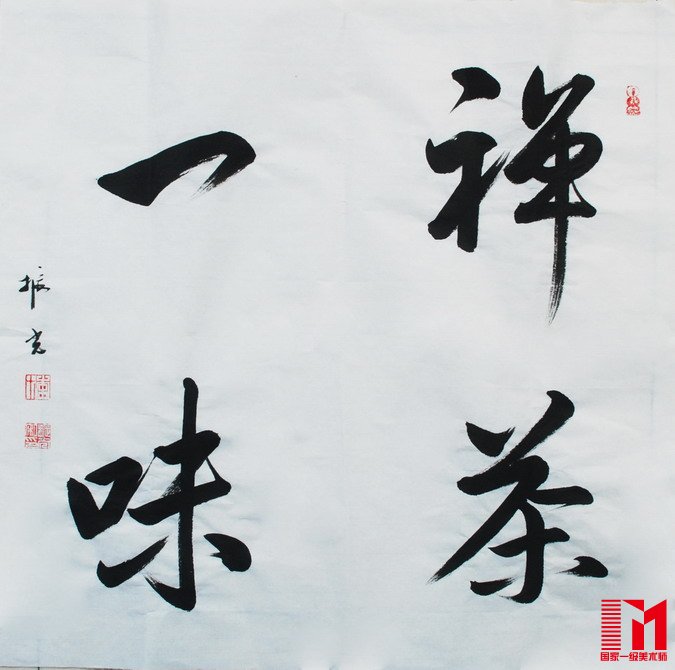 禅茶
一味
振宏
国家一级美术师